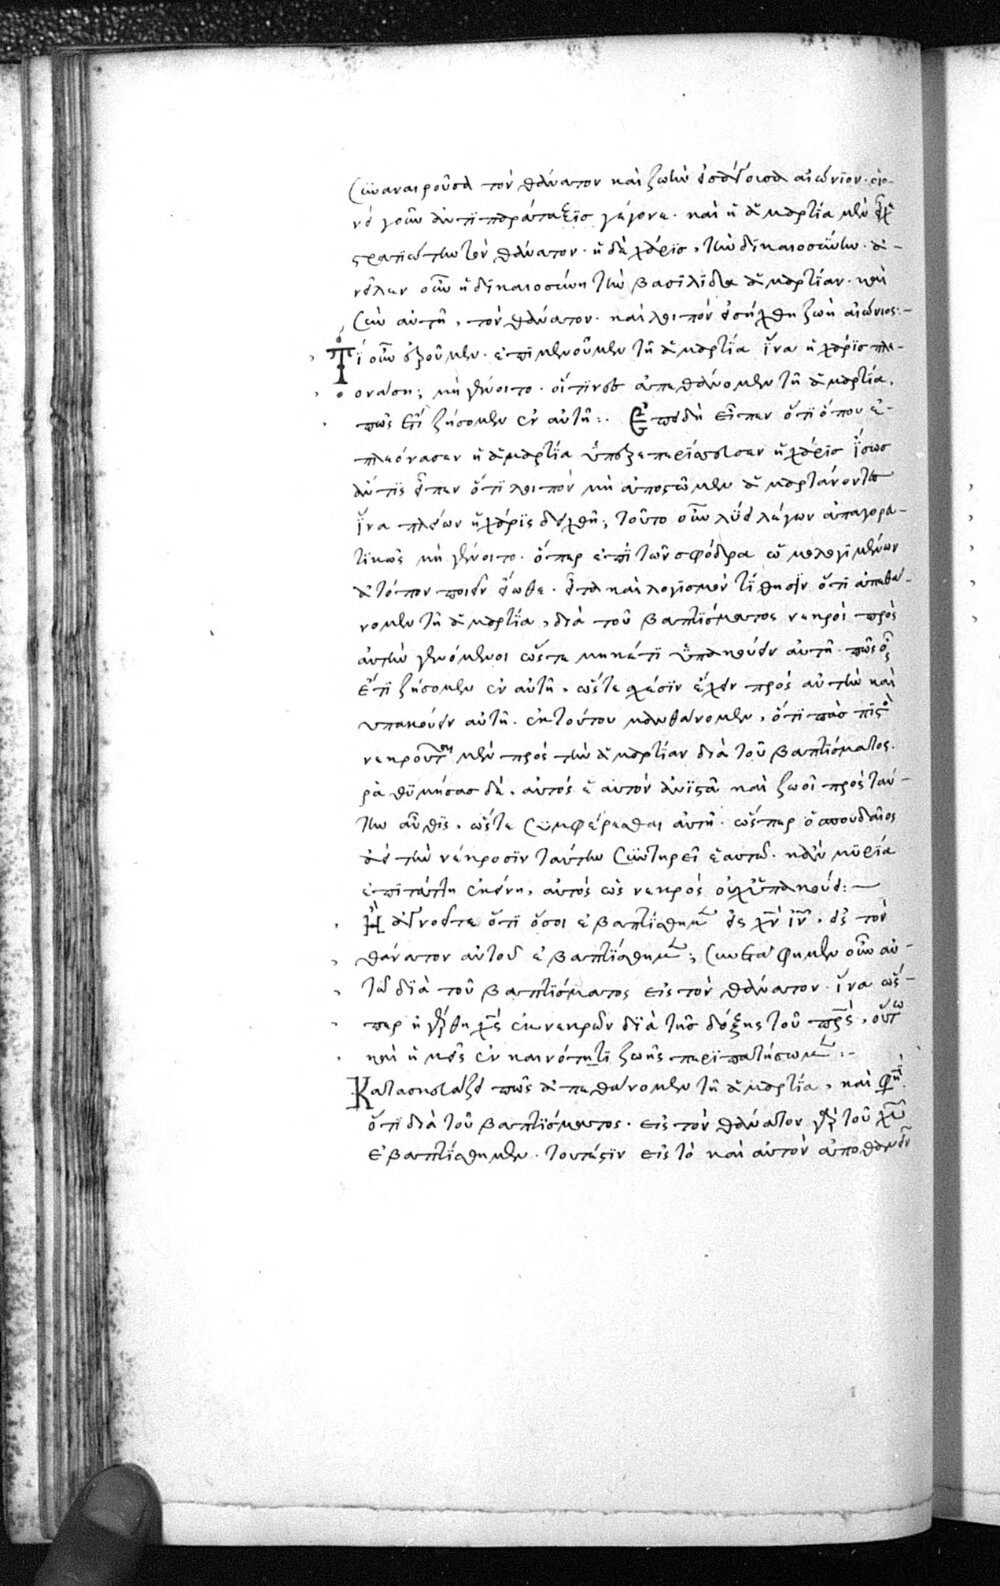 συναναιροῦσα τὸν θάνατον καὶ ζωὴν εἰσάγουσα αἰώνιον· οἱο-
νεὶ γοῦν ἀντιπαράταξις γέγονε· καὶ ἡ ἁμαρτία μὲν εἶχε
στρατιώτην τὸν θάνατον· ἡ δὲ χάρις, τὴν δικαιοσύνην· ἀ-
νεῖλεν οὖν ἡ δικαιοσύνη τὴν βασιλίδα ἁμαρτίαν· καὶ
σὺν αὐτῇ, τὸν θάνατον· καὶ λοιπὸν εἰσήχθη ζωὴ αἰώνιος·
Τί οὖν ἐροῦμεν· ἐπιμενοῦμεν τῇ ἁμαρτία ἵνα ἡ χάρις πλε-
ονάση; μὴ γένοιτο· οἵτινες ἀπεθάνομεν τῇ ἁμαρτία,
πῶς ἔτι ζήσομεν ἐν αὐτῇ:. Ἐπειδὴ εἶπεν ὅτι ὅπου ἐ-
πλεόνασεν ἡ ἁμαρτία ὑπερεπερίσσευσεν ἡ χάρις ἴσως
ἄν τις εἶπεν ὅτι λοιπὸν μὴ ἀποστῶμεν ἁμαρτάνοντες
ἵνα πλέων ἡ χάρις δειχθῇ; τοῦτο οὖν λύει λέγων ἀπαγορα-
τικῶς μὴ γένοιτο· ὅπερ ἐπὶ τῶν σφόδρα ὡμολογημένων
ἀτόπων ποιεῖν εἴωθε· εἶτα καὶ λογισμὸν τίθησιν ὅτι ἀπεθά-
νομεν τῇ ἁμαρτία, διὰ τοῦ βαπτίσματος νεκροὶ πρὸς
αὐτὴν γενόμενοι ὥστε μηκέτι ὑπακούειν αὐτῇ· πῶς οὖν
ἔτι ζήσομεν ἐν αὐτῇ, ὥστε σχέσιν ἔχειν πρὸς αὐτὴν καὶ
ὑπακούειν αὐτῇ· ἐκ τούτου μανθάνομεν, ὅτι πᾶς πιστὸς
νεκροῦται μὲν πρὸς τὴν ἁμαρτίαν διὰ τοῦ βαπτίσματος·
ῥαθυμήσας δὲ, αὐτὸς ἑαυτὸν ἀνιστᾶ καὶ ζωοῖ πρὸς ταύ-
την αὖθις, ὥστε συμφέρεσθαι αὐτῇ· ὥσπερ ὁ σπουδαῖος
ἀεὶ τὴν νέκρωσιν ταύτην συντηρεῖ ἑαυτῶ· κἂν μυρία
ἐπιτάττη ἐκείνη, αὐτὸς ὡς νεκρὸς οὐχ ὑπακούει:—
Ἢ ἀγνοεῖτε ὅτι ὅσοι ἐβαπτίσθημεν εἰς χν ιν, εἰς τὸν
θάνατον αὐτοῦ ἐβαπτίσθημεν; συνετάφημεν οὖν αὐ-
τῶ διὰ τοῦ βαπτίσματος εἰς τὸν θάνατον· ἵνα ὥσ-
περ ἠγέρθη χς ἐκ νεκρῶν διὰ τῆς δόξης τοῦ πρς, οὕτω
καὶ ἡμεῖς ἐν καινότητι ζωῆς περιπατήσωμεν:-
Κατασκευάζει πῶς ἀπεθάνομεν τῇ ἁμαρτία, καί φησιν
ὅτι διὰ τοῦ βαπτίσματος· εἰς τὸν θάνατον γὰρ τοῦ χυ
ἐβαπτίσθημεν· τουτέστιν εἰς τὸ καὶ αὐτὸν ἀποθανεῖν